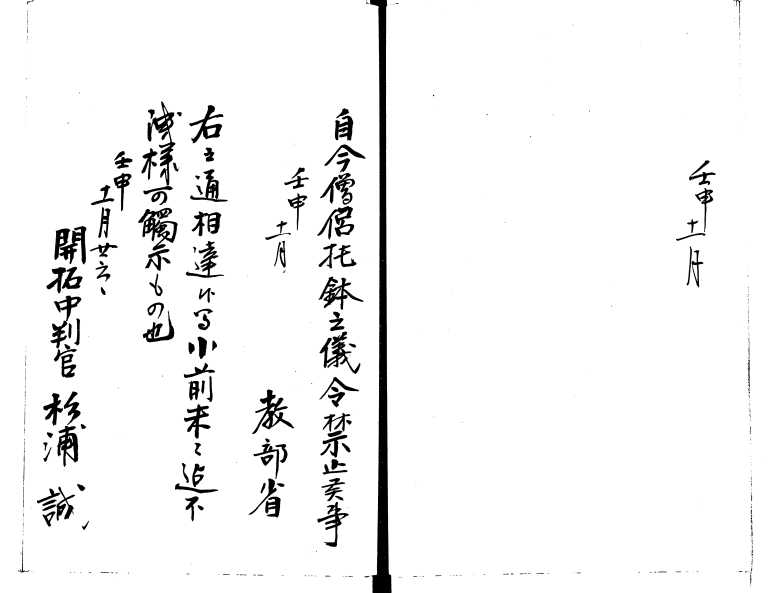 壬申十一月
自今僧侶托鉢之儀令禁止候事
壬申十一月
教部省
右之通相達候間小前末々迄不
洩様可觸示もの也
壬申十一月廿六日
開拓中判官 杉浦誠